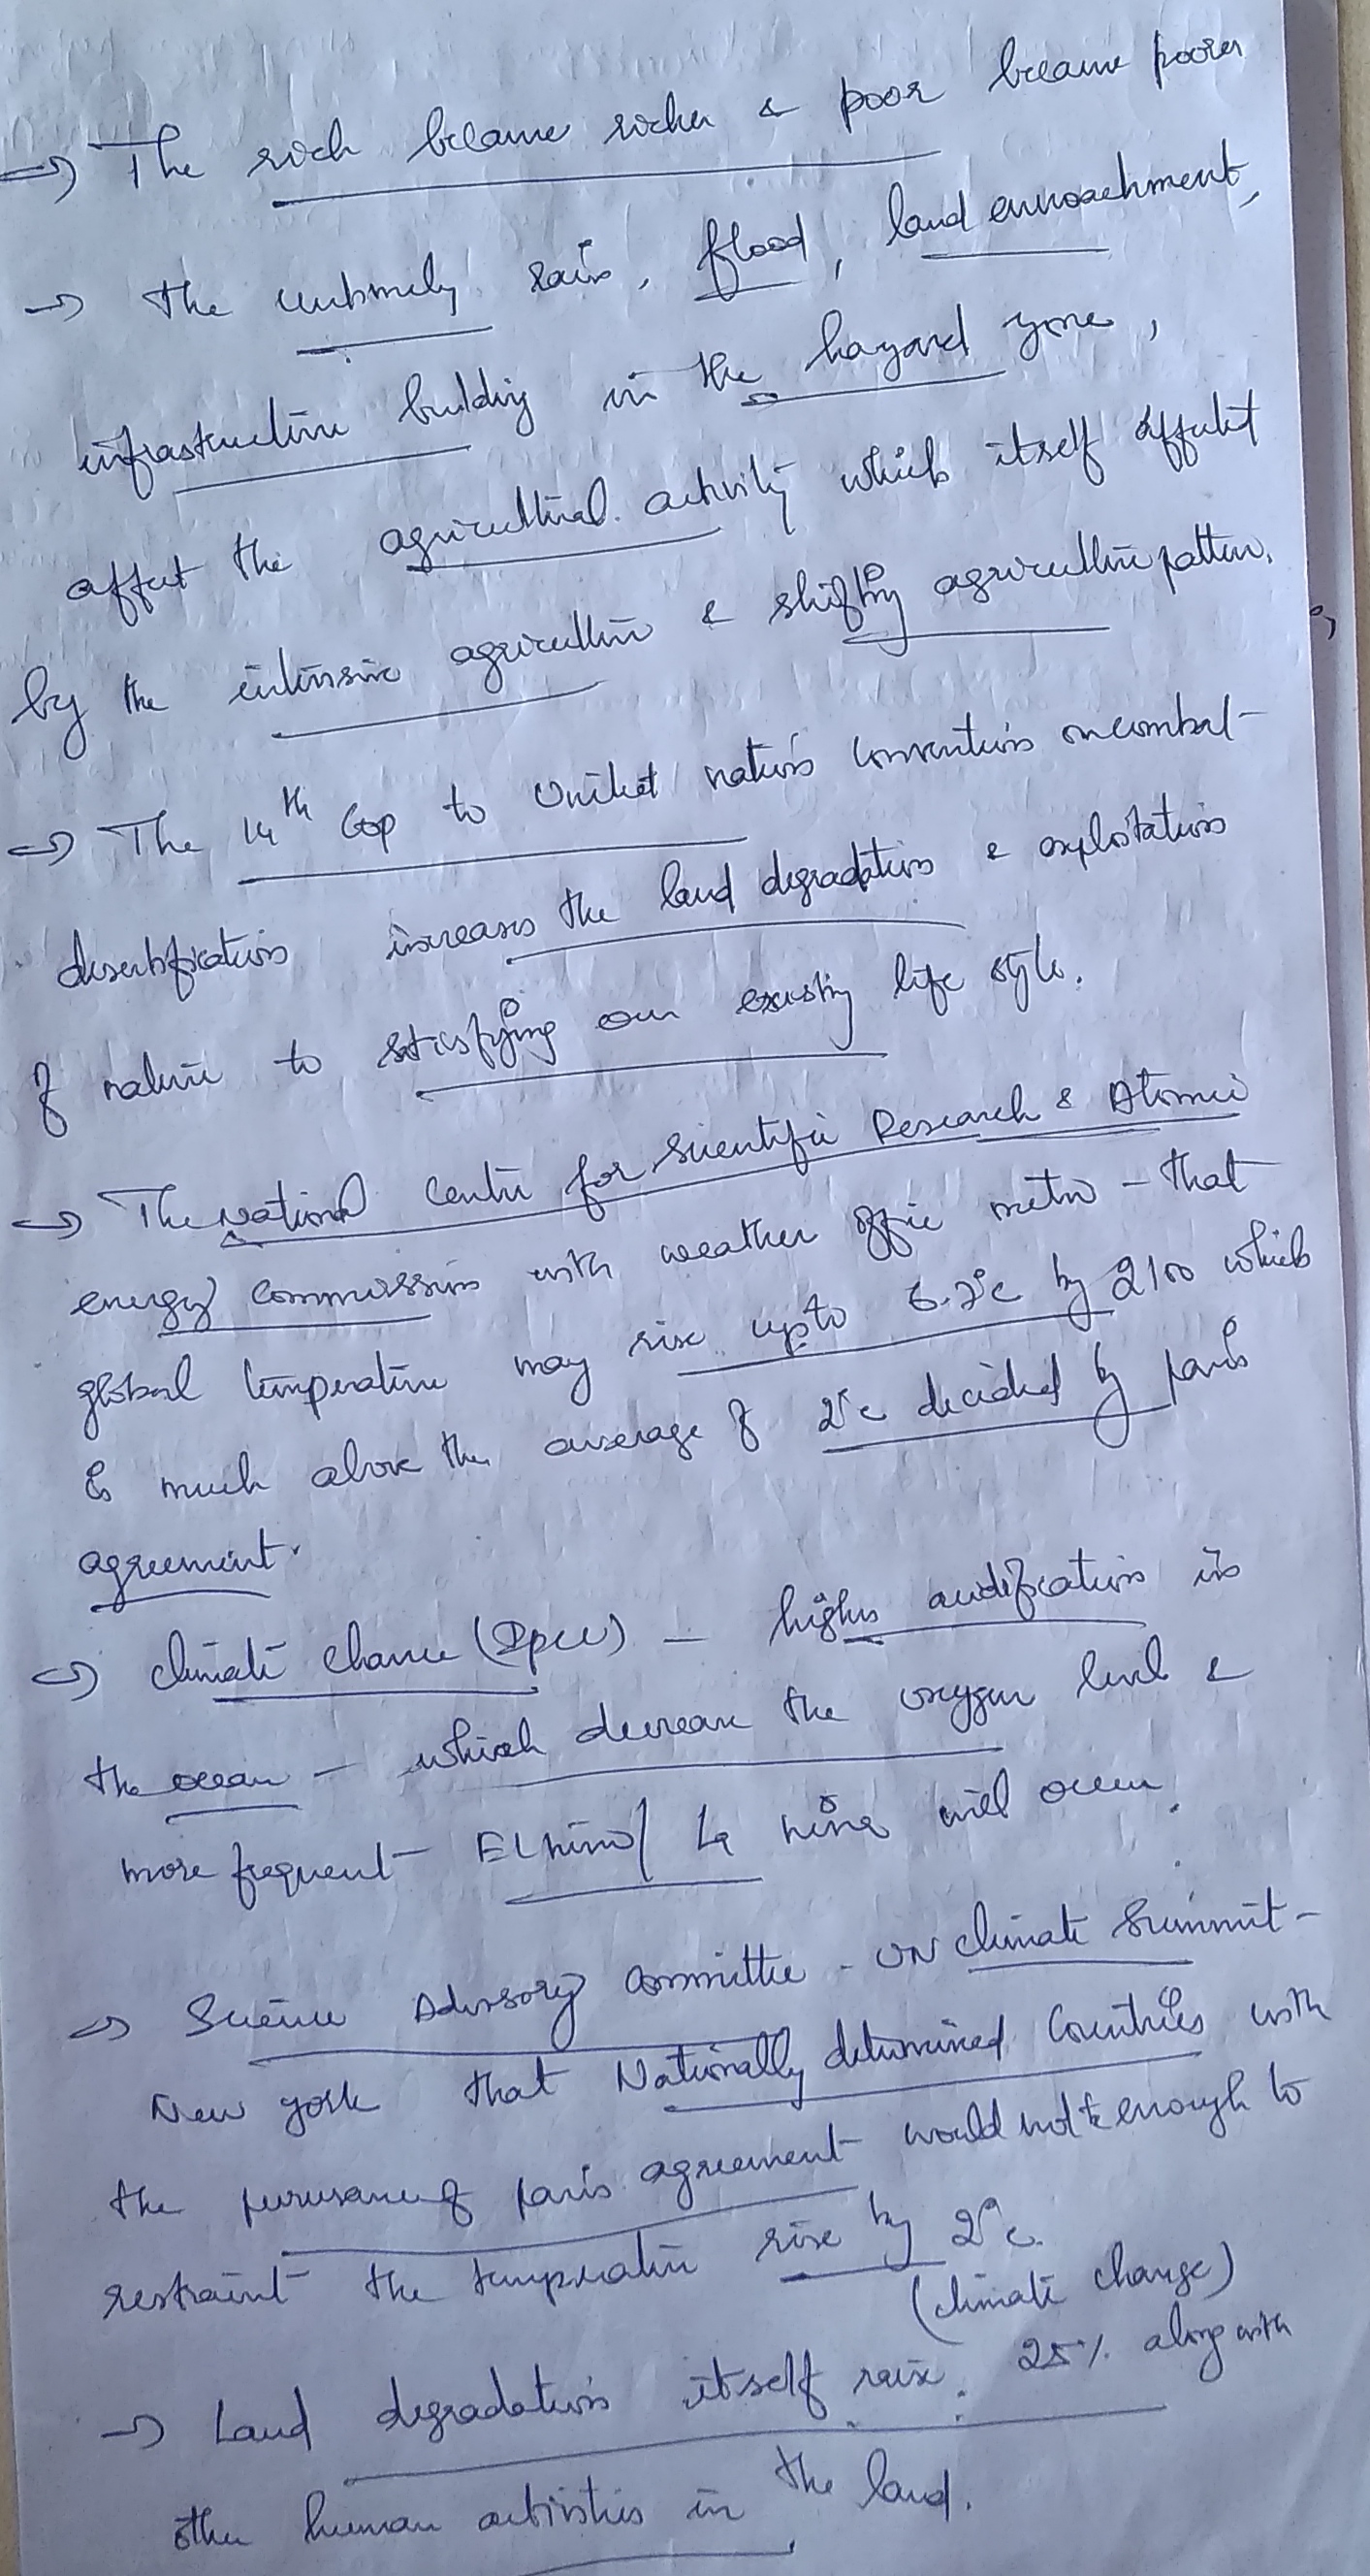 → The rich became richer & poor became poorer
→ The untimely rain, flood, land encroachment,
infrastructure building in the hazard zone,
affect the agricultural activity which itself affected
by the intensive agriculture & shifting agriculture pattern.
→ The 14th Cop to United nations convention on combat
desertification increases the land degradation & exploitation
of nature to satisfying our existing life style.
→ The National Centre for Scientific Research & Atomic
energy Commission with weather office metro - that
global temperature may rise upto 6.7°c by 2100 which
is much above the average of 2°c decided by paris
agreement.
→ Climate Chance (Ipcc) - higher acidification in
the ocean - which decrease the oxygen level &
more frequent - El nino/ La nina will occur.
→ Science Advisory Committee - UN Climate Summit -
New york that Nationally determined Countries with
the of paris agreement would not be enough to
restraint the temperature rise by 2°c.
(climate change)
→ Land degradation itself raise 25% along with
other human activities in the land.